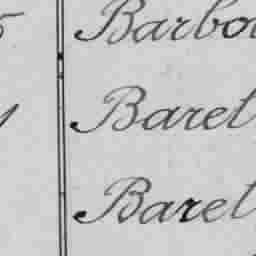 Barbo
Baret
Baret